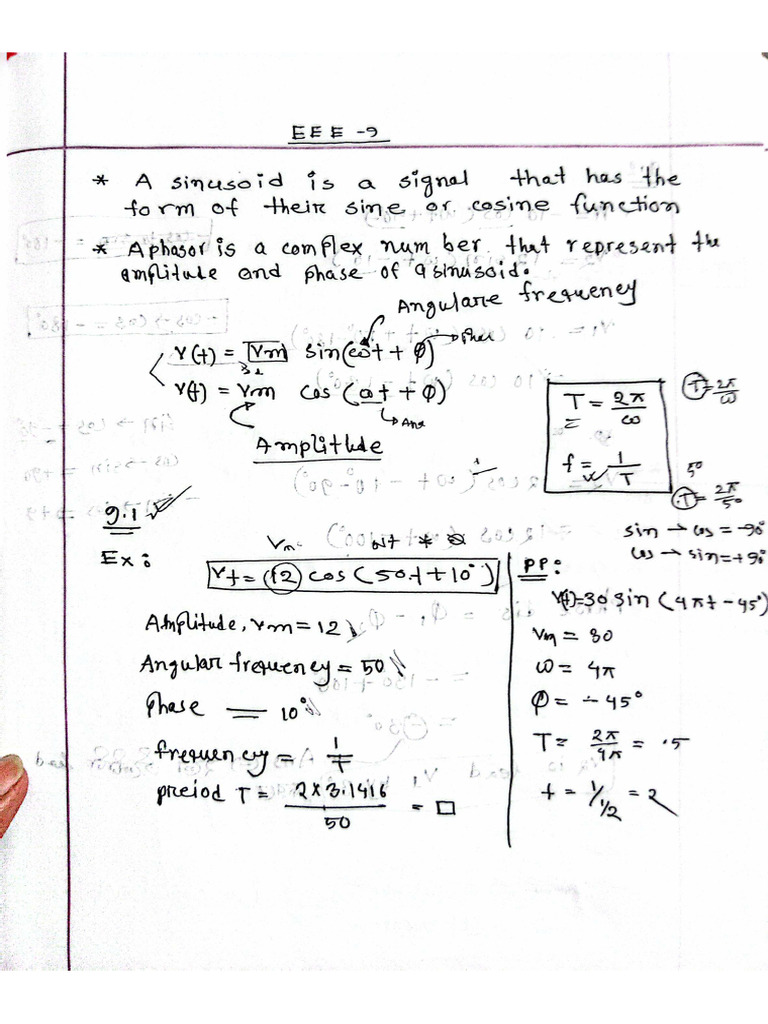 EEE -9
* A sinusoid is a signal that has the
form of their sine or cosine function
* A phasor is a complex num ber that represent the
amplitude and phase of a sinusoid.
Angulare frequency
v(t) = Vm sin(ωt + φ)
v(t) = Vm cos (ωt + φ)
Amplitude
T = 2π/ω
f = 1/T
T = 2π/ω
50
T = 2π/50
sin → cos = -90°
cos → sin = +90°
9.1
Ex:
Vt = 12 cos (50t + 10°)
Amplitude, vm = 12
Angular frequency = 50
Phase = 10°
frequency = 1/T
preiod T = 2×3.1416/50 = □
PP:
V(t) = 30 sin (4πt - 45°)
Vm = 30
ω = 4π
φ = -45°
T = 2π/4π = .5
f = 1/1/2 = 2